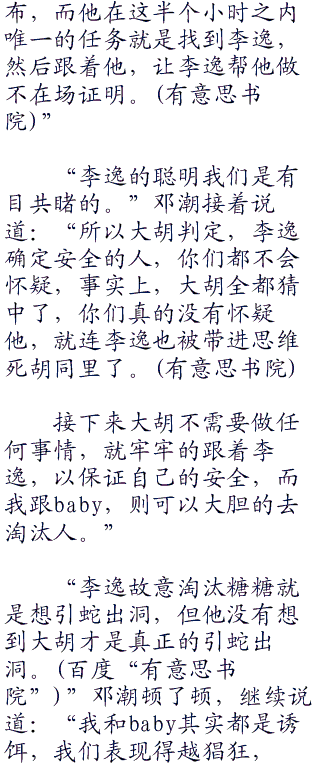 布，而他在这半个小时之内
唯一的任务就是找到李逸，
然后跟着他，让李逸帮他做
不在场证明。(有意思书
院)”
“李逸的聪明我们是有
目共睹的。”邓潮接着说
道：“所以大胡判定，李逸
确定安全的人，你们都不会
怀疑，事实上，大胡全都猜
中了，你们真的没有怀疑
他，就连李逸也被带进思维
死胡同里了。(有意思书院)
接下来大胡不需要做任
何事情，就牢牢的跟着李
逸，以保证自己的安全，而
我跟baby，则可以大胆的去
淘汰人。”
“李逸故意淘汰糖糖就
是想引蛇出洞，但他没有想
到大胡才是真正的引蛇出
洞。(百度“有意思书
院”)”邓潮顿了顿，继续说
道：“我和baby其实都是诱
饵，我们表现得越猖狂，